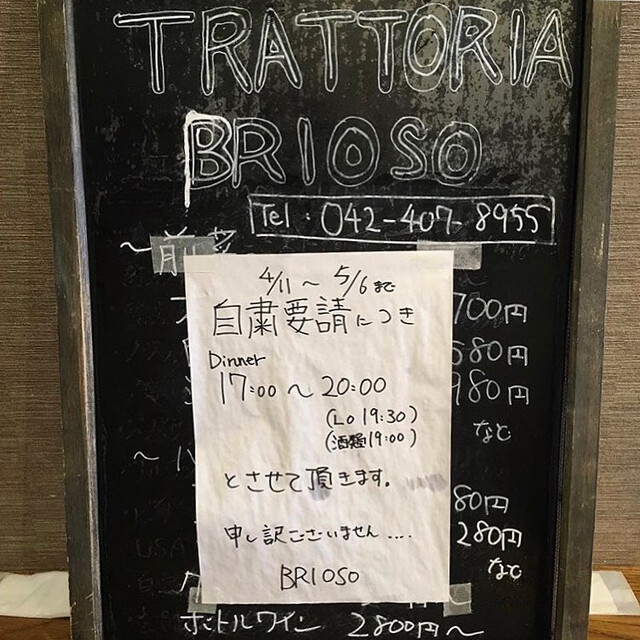 TRATTORIA
BRIOSO
Tel : 042-407-8955
～前菜
4/11～5/6まで
自粛要請につき
Dinner
17:00～20:00
(Lo 19:30)
(酒類19:00)
とさせて頂きます。
申し訳ございません....
BRIOSO
700円
580円
980円
など
80円
280円
など
USA
ボトルワイン 2800円～